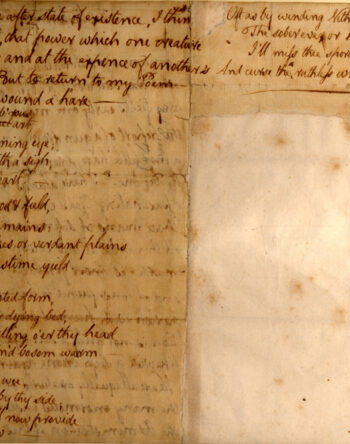 after state of existence, I thin
that power which one creature
and at the expence of another's
But to return to my Poem
wound a hare —
b'rous
art
ning eye,
th a sigh,
eart!
ood & field,
mains
es or verdant plains
stime yield
ted form,
dying bed,
lling o'er thy head
n'd bosom warm
woe;
by thy side;
now provide
Oft as by winding Nith
The sober eve, or
I'll miss thee spor
And curse the ruthless w